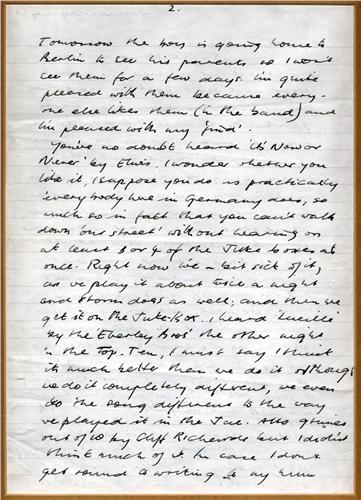 2.
Tomorrow the boy is going home to
Berlin to see his parents so I won't
see them for a few days. I'm quite
pleased with them because every-
one else likes them (in the band) and
I'm pleased with my 'find'.
You've no doubt heard 'Its Now or
Never' by Elvis. I wonder whether you
like it, I suppose you do as practically
everybody here in Germany does, so
much so in fact that you can't walk
down 'our street' without hearing on
at least 3 or 4 of the Juke boxes at
once. Right now I've a bit sick of it,
as we play it about twice a night
and Storm does as well; and then we
get it on the Juke-Box. I heard 'Lucille'
by the Everley Bros' the other night
in the Top-Ten, I must say I think
its much better than we do it although
we do it completely different, we even
do the song different to the way
we played it in the Jac. Also
out of 10 by Cliff Richards but I didnt
think much of it. In case I dont
get round to writing to my mum